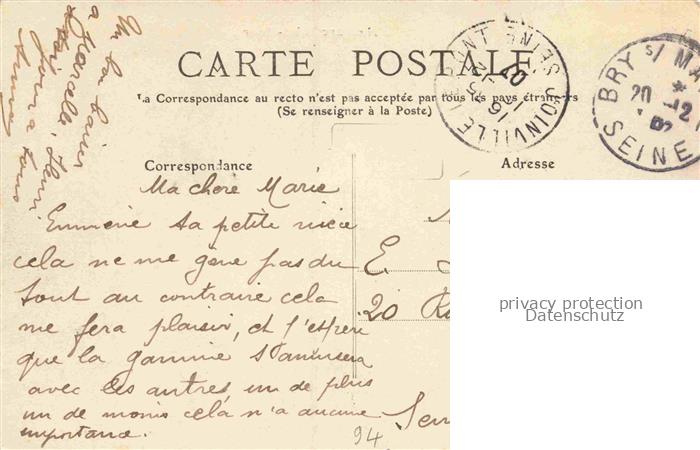 CARTE POSTALE
La Correspondance au recto n'est pas acceptée par tous les pays étrangers
(Se renseigner à la Poste)
Correspondance
Adresse
Ma chere Marie
Emmène ta petite nièce
cela ne me gêne pas du
tout au contraire cela
me fera plaisir, et j'espère
que la gamine s'amusera
avec les autres, un de plus
un de moins cela n'a aucune
importance.
E.
20
94
JOINVILLE
SEINE
BRY s/ MA
20 -12
SEINE
privacy protection
Datenschutz